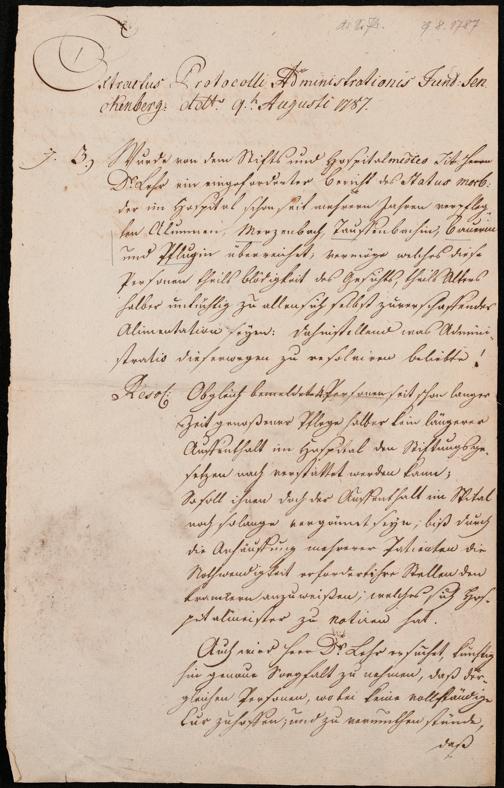 9.8.1787
Extractus Protocolli Administrationis Fund: Sen
ckenberg: ddtt. 9.t. Augusti 1787.
3,) Wurde von dem Stifts und Hospitalmedico Tit. Herrn
Dr. Lehr ein eingeforderter Bericht des Status morb.
der im Hospital schon seit mehrern Jahren verpfleg
ten Alumnen, Merzenbach, Tauffenbachin, Bauerin
und Pflugin überreichet, vermöge welches diese
Personen theils blödigkeit des Gesichts, theils Alters
halber untüchtig zu aller sich selbst zu verschaffenden
Alimentation seyen: dahinstellend was Admini-
stratio dieserwegen zu resolviren beliebte!
Resol: Obgleich bemeldete 4 Personen seit schon langer
Zeit genoßener Pflege halber kein längerer
Auffenthalt im Hospital den Stiftungsge-
setzen nach verstattet werden kann;
So soll ihnen doch der Auffenthalt im Spital
noch solange vergönnet seyn, biß durch
die Anhäuffung mehrerer Patienten die
Nothwendigkeit erfordert ihre Stellen den
Kranckern anzuweißen; welches sich Hos-
pitalmeister zu notiren hat.
Auch wird Herr Dr. Lehr ersuchet, künftig
hin genaue Sorgfalt zu nehmen, daß der-
gleichen Personen, wobei keine vollständige
Cur zu hoffen, und zu vermuthen stünde,
daß